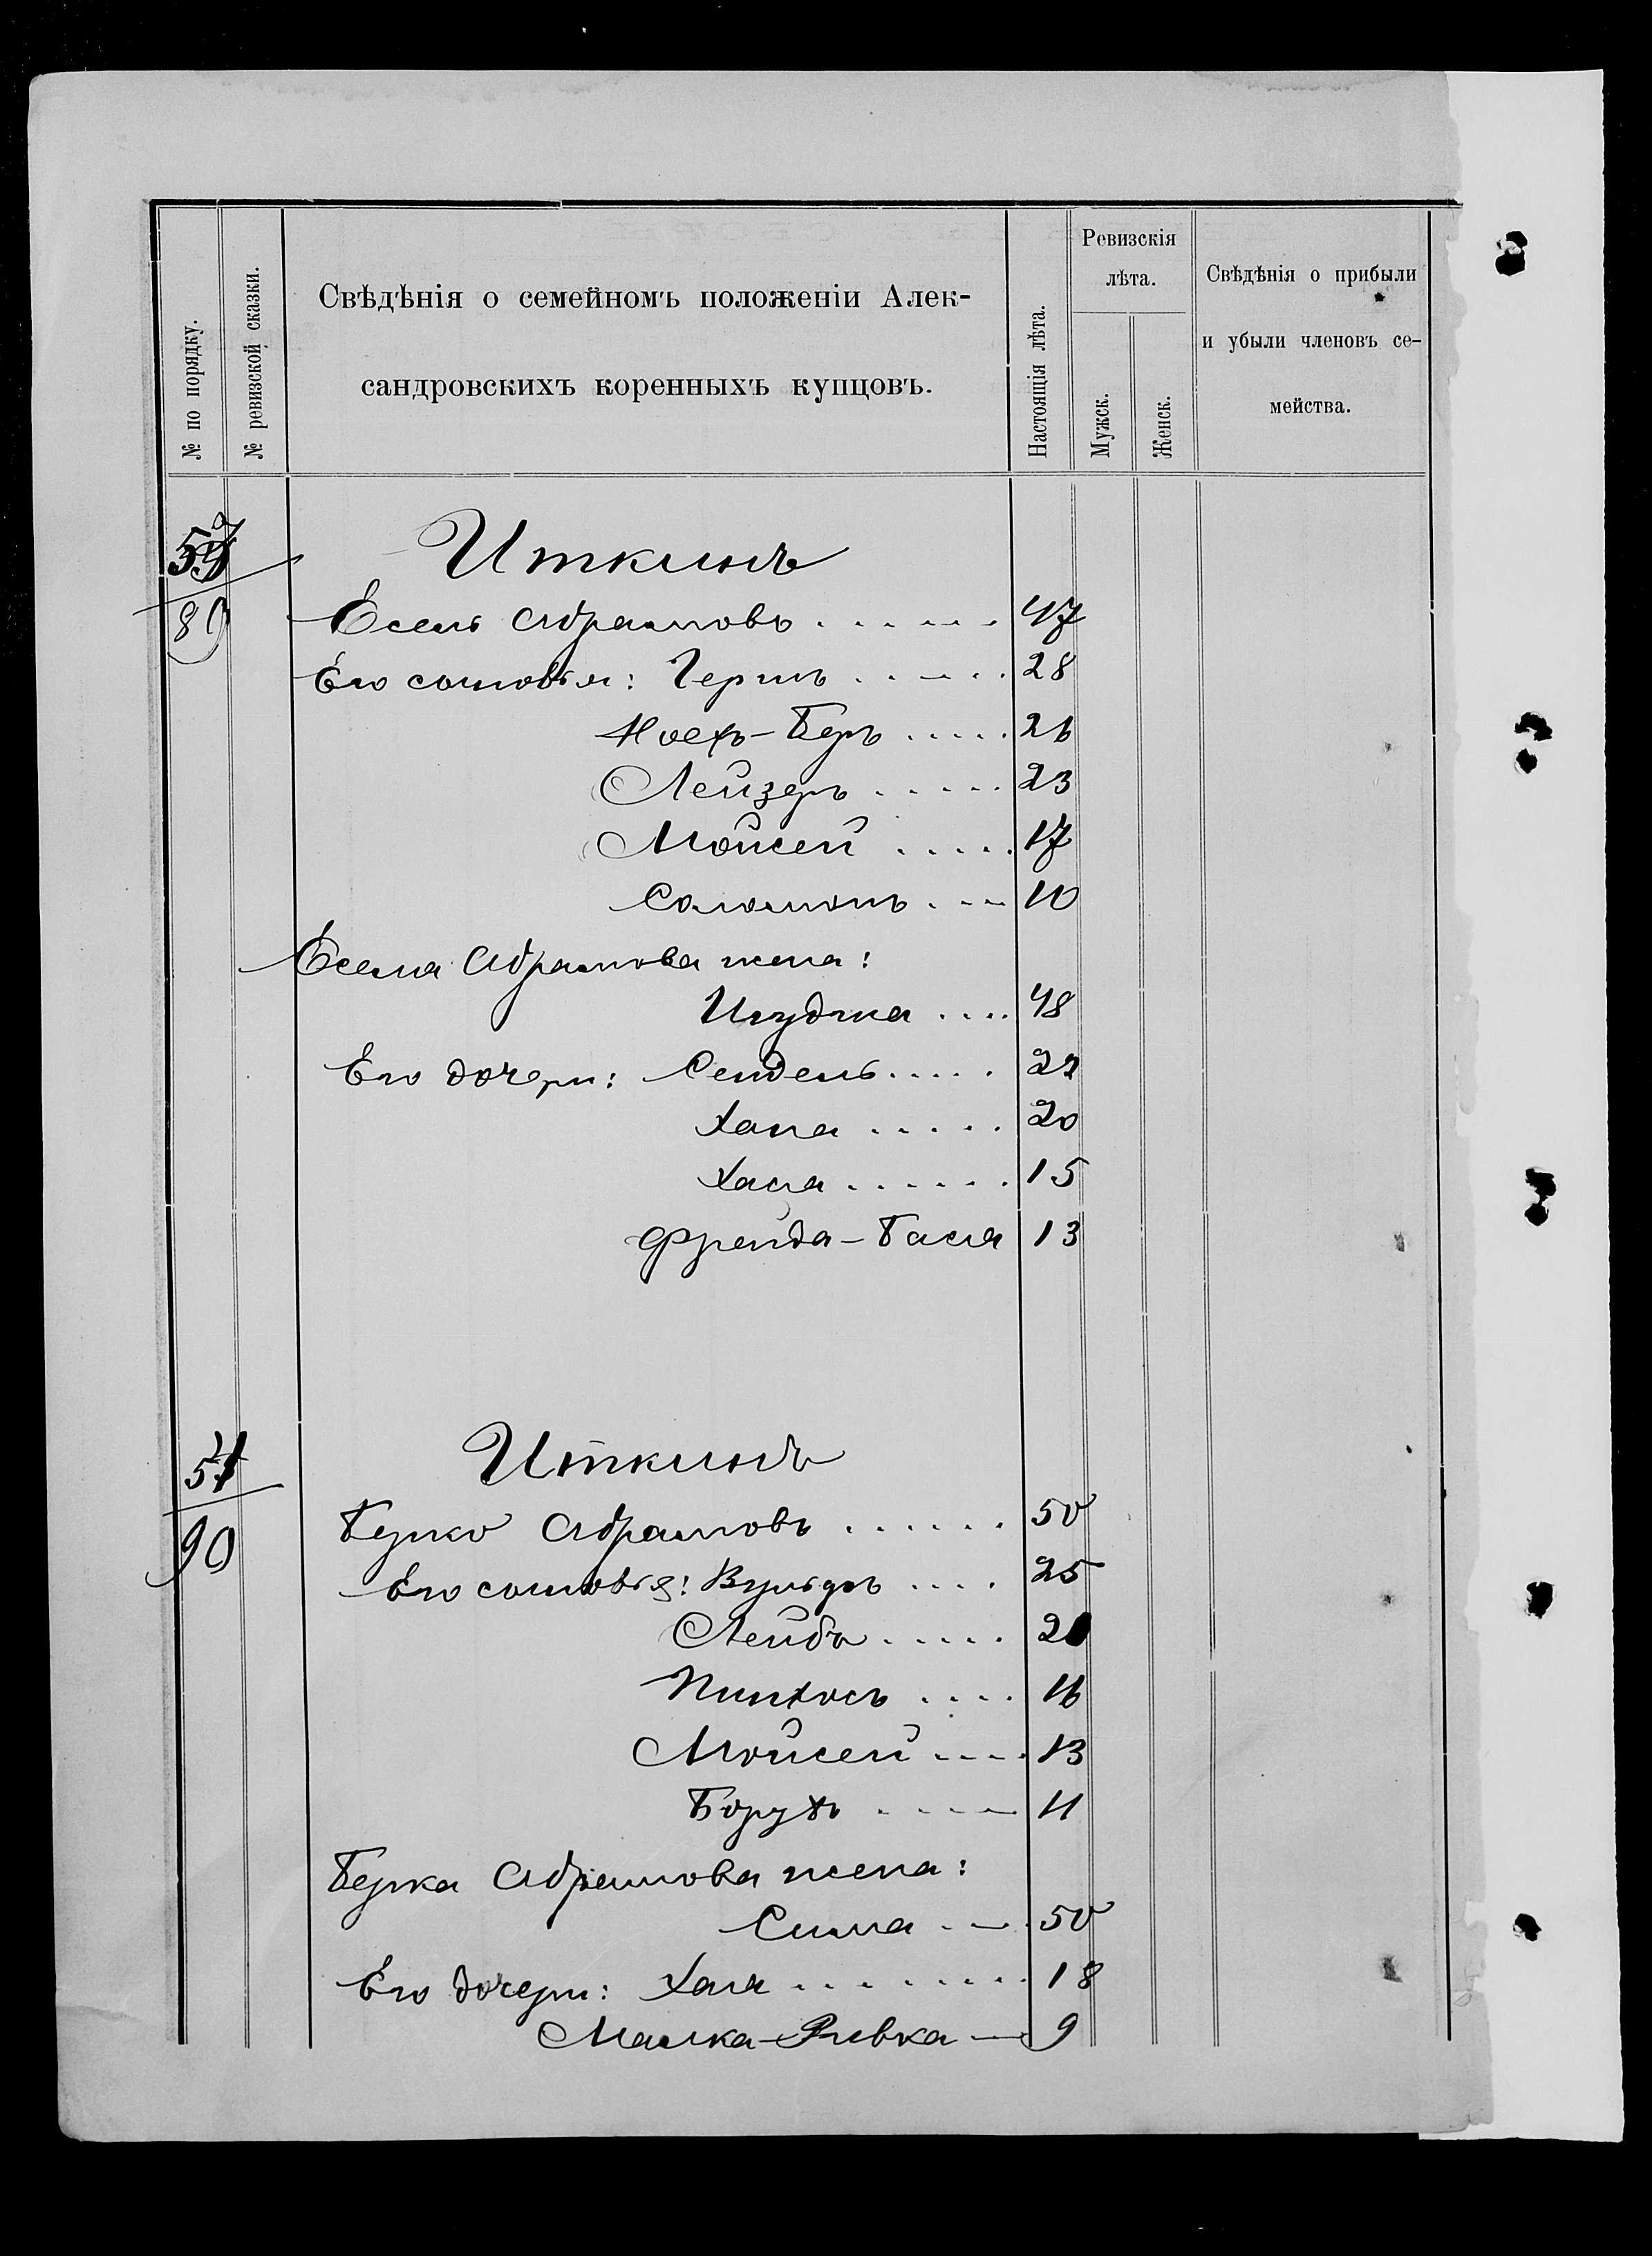 № по порядку.
№ ревизской сказки.
Свѣдѣнія о семейномъ положеніи Алек-
сандровскихъ коренныхъ купцовъ.
Настоящія лѣта.
Ревизскія
лѣта.
Мужск.
Женск.
Свѣдѣнія о прибыли
и убыли членовъ се-
мейства.
Иткинъ
89
Есель Абрамовъ . . . . . . 47
Его сыновья: Герцъ . . . . . 28
Ноехъ-Беръ . . . . . 26
Лейзеръ . . . . . 23
Мойсей . . . . . 17
Соломонъ . . . 10
Есела Абрамова жена:
48
Его дочери: Сендель . . . . . 22
Хана . . . . . 20
Хася . . . . . . 15
Фрейда-Бася 13
Иткинъ
90
Берко Абрамовъ . . . . . . 50
Его сыновья: Вульфъ . . . . 25
Лейба . . . . .
Пинхосъ . . . . 16
Мойсей . . . . 13
Борухъ . . . . 11
Берка Абрамова жена:
Сима . . . 50
Его дочери: Хая . . . . . . . . 18
Малка-Ривка — 9